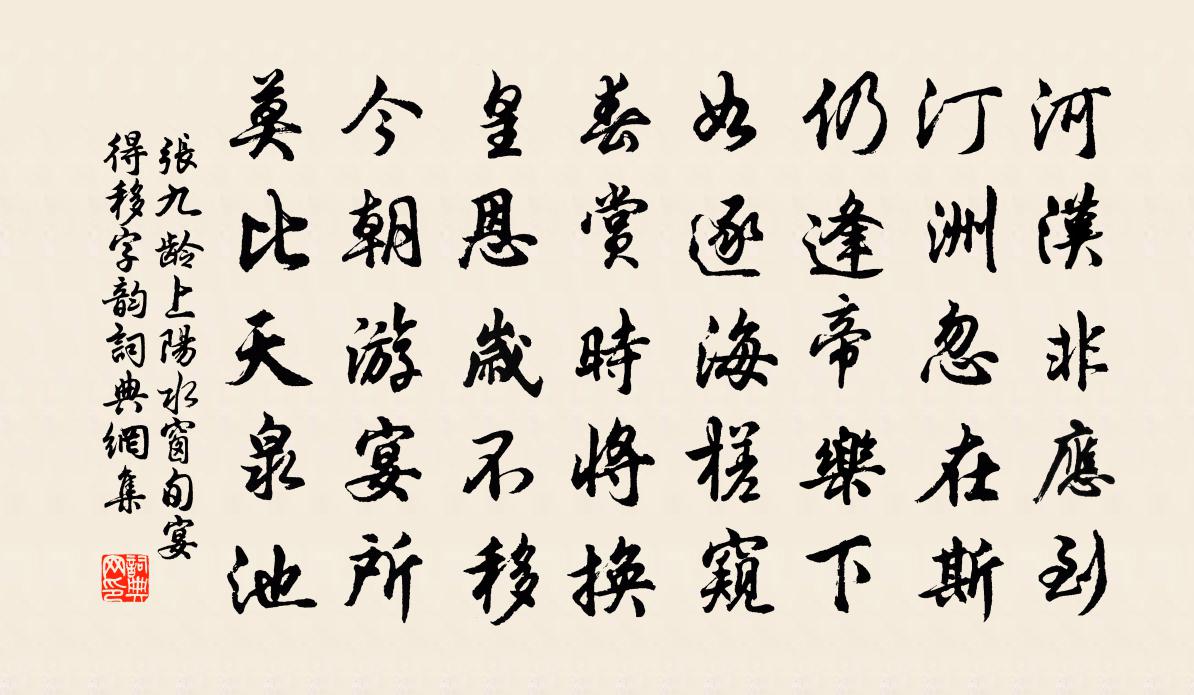 河漢非應到
汀洲忽在斯
仍逢帝樂下
如逐海槎窺
春賞時將換
皇恩歲不移
今朝游宴所
莫比天泉池
張九龄上陽水窗旬宴
得移字韵詞典網集
詞典
网印